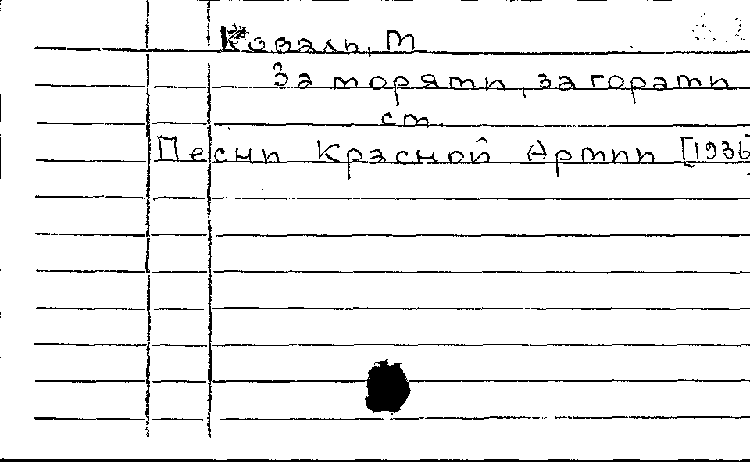 Коваль, М
За морями, за горами
см.
Песни Красной Армии [1936